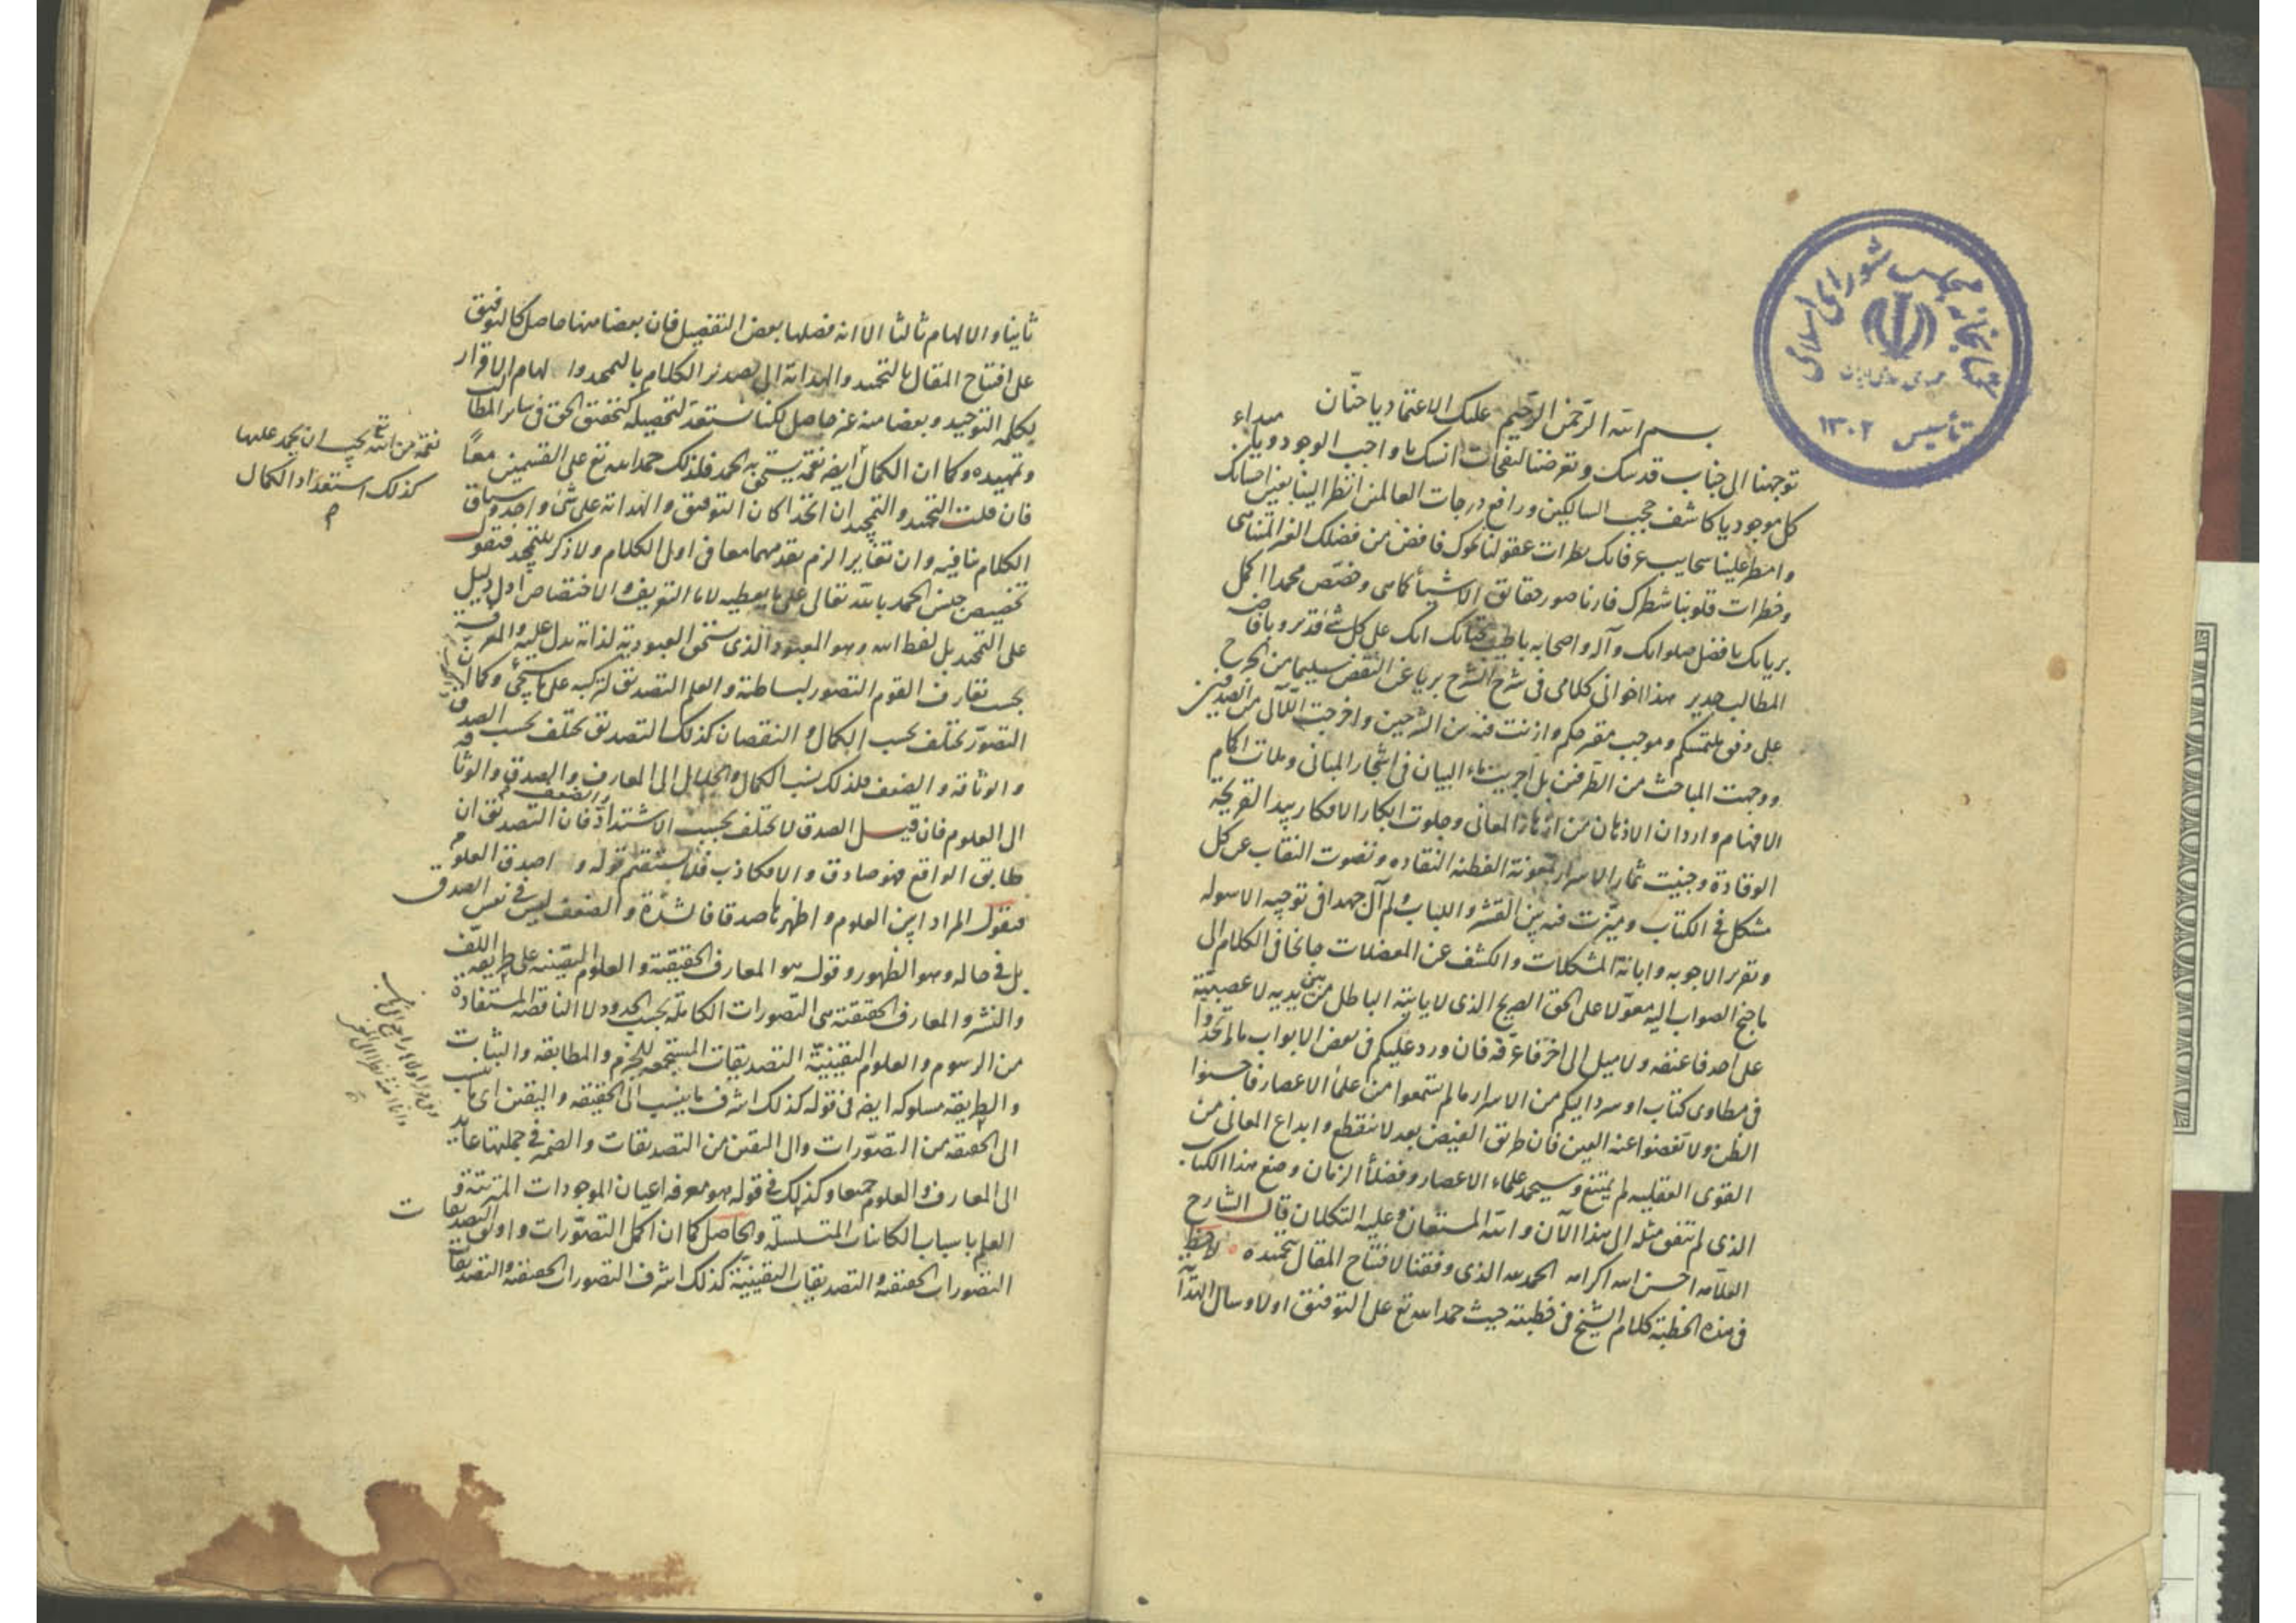 كتابخانه مجلس شورای اسلامی
تأسيس ١٣٠٢
بسم الله الرحمن الرحيم عليك الاعتماد يا حنّان
توجهنا الى جناب قدسك وتعرضنا لنفحات انسك يا واجب الوجود ويا مبداء
كل موجود يا كاشف حجب السالكين ورافع درجات العالمين انظر الينا بعين احسانك
وامطر علينا سحايب عرفانك نظرات عقولنا نحوك فافض من فضلك الغير المتناهى
وخطرات قلوبنا شطرك فارنا صور حقائق الاشياء كما هى وخصّص محمدا اكمل
برياتك بافضل صلواتك وآله واصحابه باطيب تحياتك انك على كل شئ قدير وبافاضة
المطالب جدير هذا اخوانى كلامى فى شرح الشرح بريا عن النقض سليما من الجرح
على وفق ملتمسكم وموجب مقترحكم وازنت فيه بين الشرحين واخرجت اللآلى من الصدفين
ووجهت المباحث من الطرفين بل اجريت ماء البيان فى اشجار المبانى وملات اكمام
الافهام واردان الاذهان من ازهار المعانى وجلوت ابكار الافكار بيد القريحة
الوقادة وجنيت ثمار الاسرار بمعونة الفطنة النقاده ونضوت النقاب عن كل
مشكل فى الكتاب وميّزت فيه بين القشر واللباب ولم آل جهدا فى توجيه الاسوله
وتقرير الاجوبه وابانة المشكلات والكشف عن المعضلات جانحا فى الكلام الى
ما جنح الصواب اليه معوّلا على الحق الصريح الذى لا ياتيه الباطل من بين يديه لا عصبيّة
على احد فاعنفه ولا ميل الى اخر فاعرفه فان ورد عليكم فى بعض الابواب ما لم تجدوا
فى مطاوى كتاب او سرد اليكم من الاسرار ما لم تسمعوا من علماء الاعصار فاحسنوا
الظن ولا تغضوا عنه العين فان طريق الفيض بعد لا ينقطع وابداع المعانى من
القوى العقليه لم يمتنع وسيحمد علماء الاعصار وفضلاء الزمان وضع هذا الكتاب
الذى لم يتفق مثله الى هذا الآن والله المستعان وعليه التكلان قال الشارح
العلامه احسن الله اكرامه الحمد لله الذى وفقنا لافتتاح المقال بتحميده لاحظ
فى هذه الخطبة كلام الشيخ فى خطبته حيث حمد الله تع على التوفيق اولا وسال الهداية
ثانيا والالهام ثالثا الا انه فصلها بعض التفصيل فان بعضا منها حاصل كالتوفيق
على افتتاح المقال بالتحميد والهداية الى تصدير الكلام بالتمجيد والهام الاقرار
بكلمة التوحيد وبعضا منه غير حاصل لكنا نستعد لتحصيله كتحقيق الحق فى ساير المطالب
وتمهيده وكما ان الكمال ايضا نعمة يستحق به الحمد فلذلك حمد الله تع على القسمين معاً
نعمة من الله تع يجب ان يحمد عليها
كذلك استعداد الكمال
فان قلت التحميد والتمجيد ان اتحدا كان التوفيق والهداية على شئ واحد وسياق
الكلام ينافيه وان تغايرا لزم تقديمهما معا فى اول الكلام ولا ذكر للتمجيد فنقول
تخصيص جنس الحمد بالله تعالى على ما يعطيه لاما التعريف والاختصاص ادل دليل
على التمجيد بل لفظ الله وهو المعبود الذى يستحق العبودية لذاته يدل عليه والمعرفة
بحسب تعارف القوم التصور لبساطته والعلم التصديق لتركبه على ما سيجئ وكما ان
التصوّر يختلف بحسب الكمال والنقصان كذلك التصديق يختلف بحسب الصدق
والوثاقة والضعف فلذلك نسب الكمال والجلال الى المعارف والصدق والوثاقة
الى العلوم فان قيل الصدق لا يختلف بحسب الاشتداد والضعف فان التصديق ان
طابق الواقع فهو صادق والا فكاذب فلا يستقيم قوله واصدق العلوم
فنقول المراد ابين العلوم واظهرها صدقا فالشدة والضعف ليس فى نفس الصدق
بل فى حاله وهو الظهور وقوله هو المعارف الحقيقية والعلوم اليقينية على طريقة اللف
والنشر والمعارف الحقيقية هى التصورات الكاملة بحسب الحدود لا الناقصة المستفادة
من الرسوم والعلوم اليقينيّة التصديقات المستجمعة للجزم والمطابقة والثبات
والطريقه مسلوكه ايضا فى قوله كذلك اشرف ما ينسب الى الحقيقه واليقين اى ينسب
الى الحقيقه من التصوّرات والى اليقين من التصديقات والضمير فى جملتها عايد
الى المعارف والعلوم جميعا وكذلك فى قوله هو معرفه اعيان الموجودات المترتبة و
العلم باسباب الكائنات المتسلسلة والحاصل كما ان اكمل التصوّرات واوثق التصديقات
التصورات الحقيقيه والتصديقات اليقينيّة كذلك اشرف التصورات الحقيقيه والتصديقات